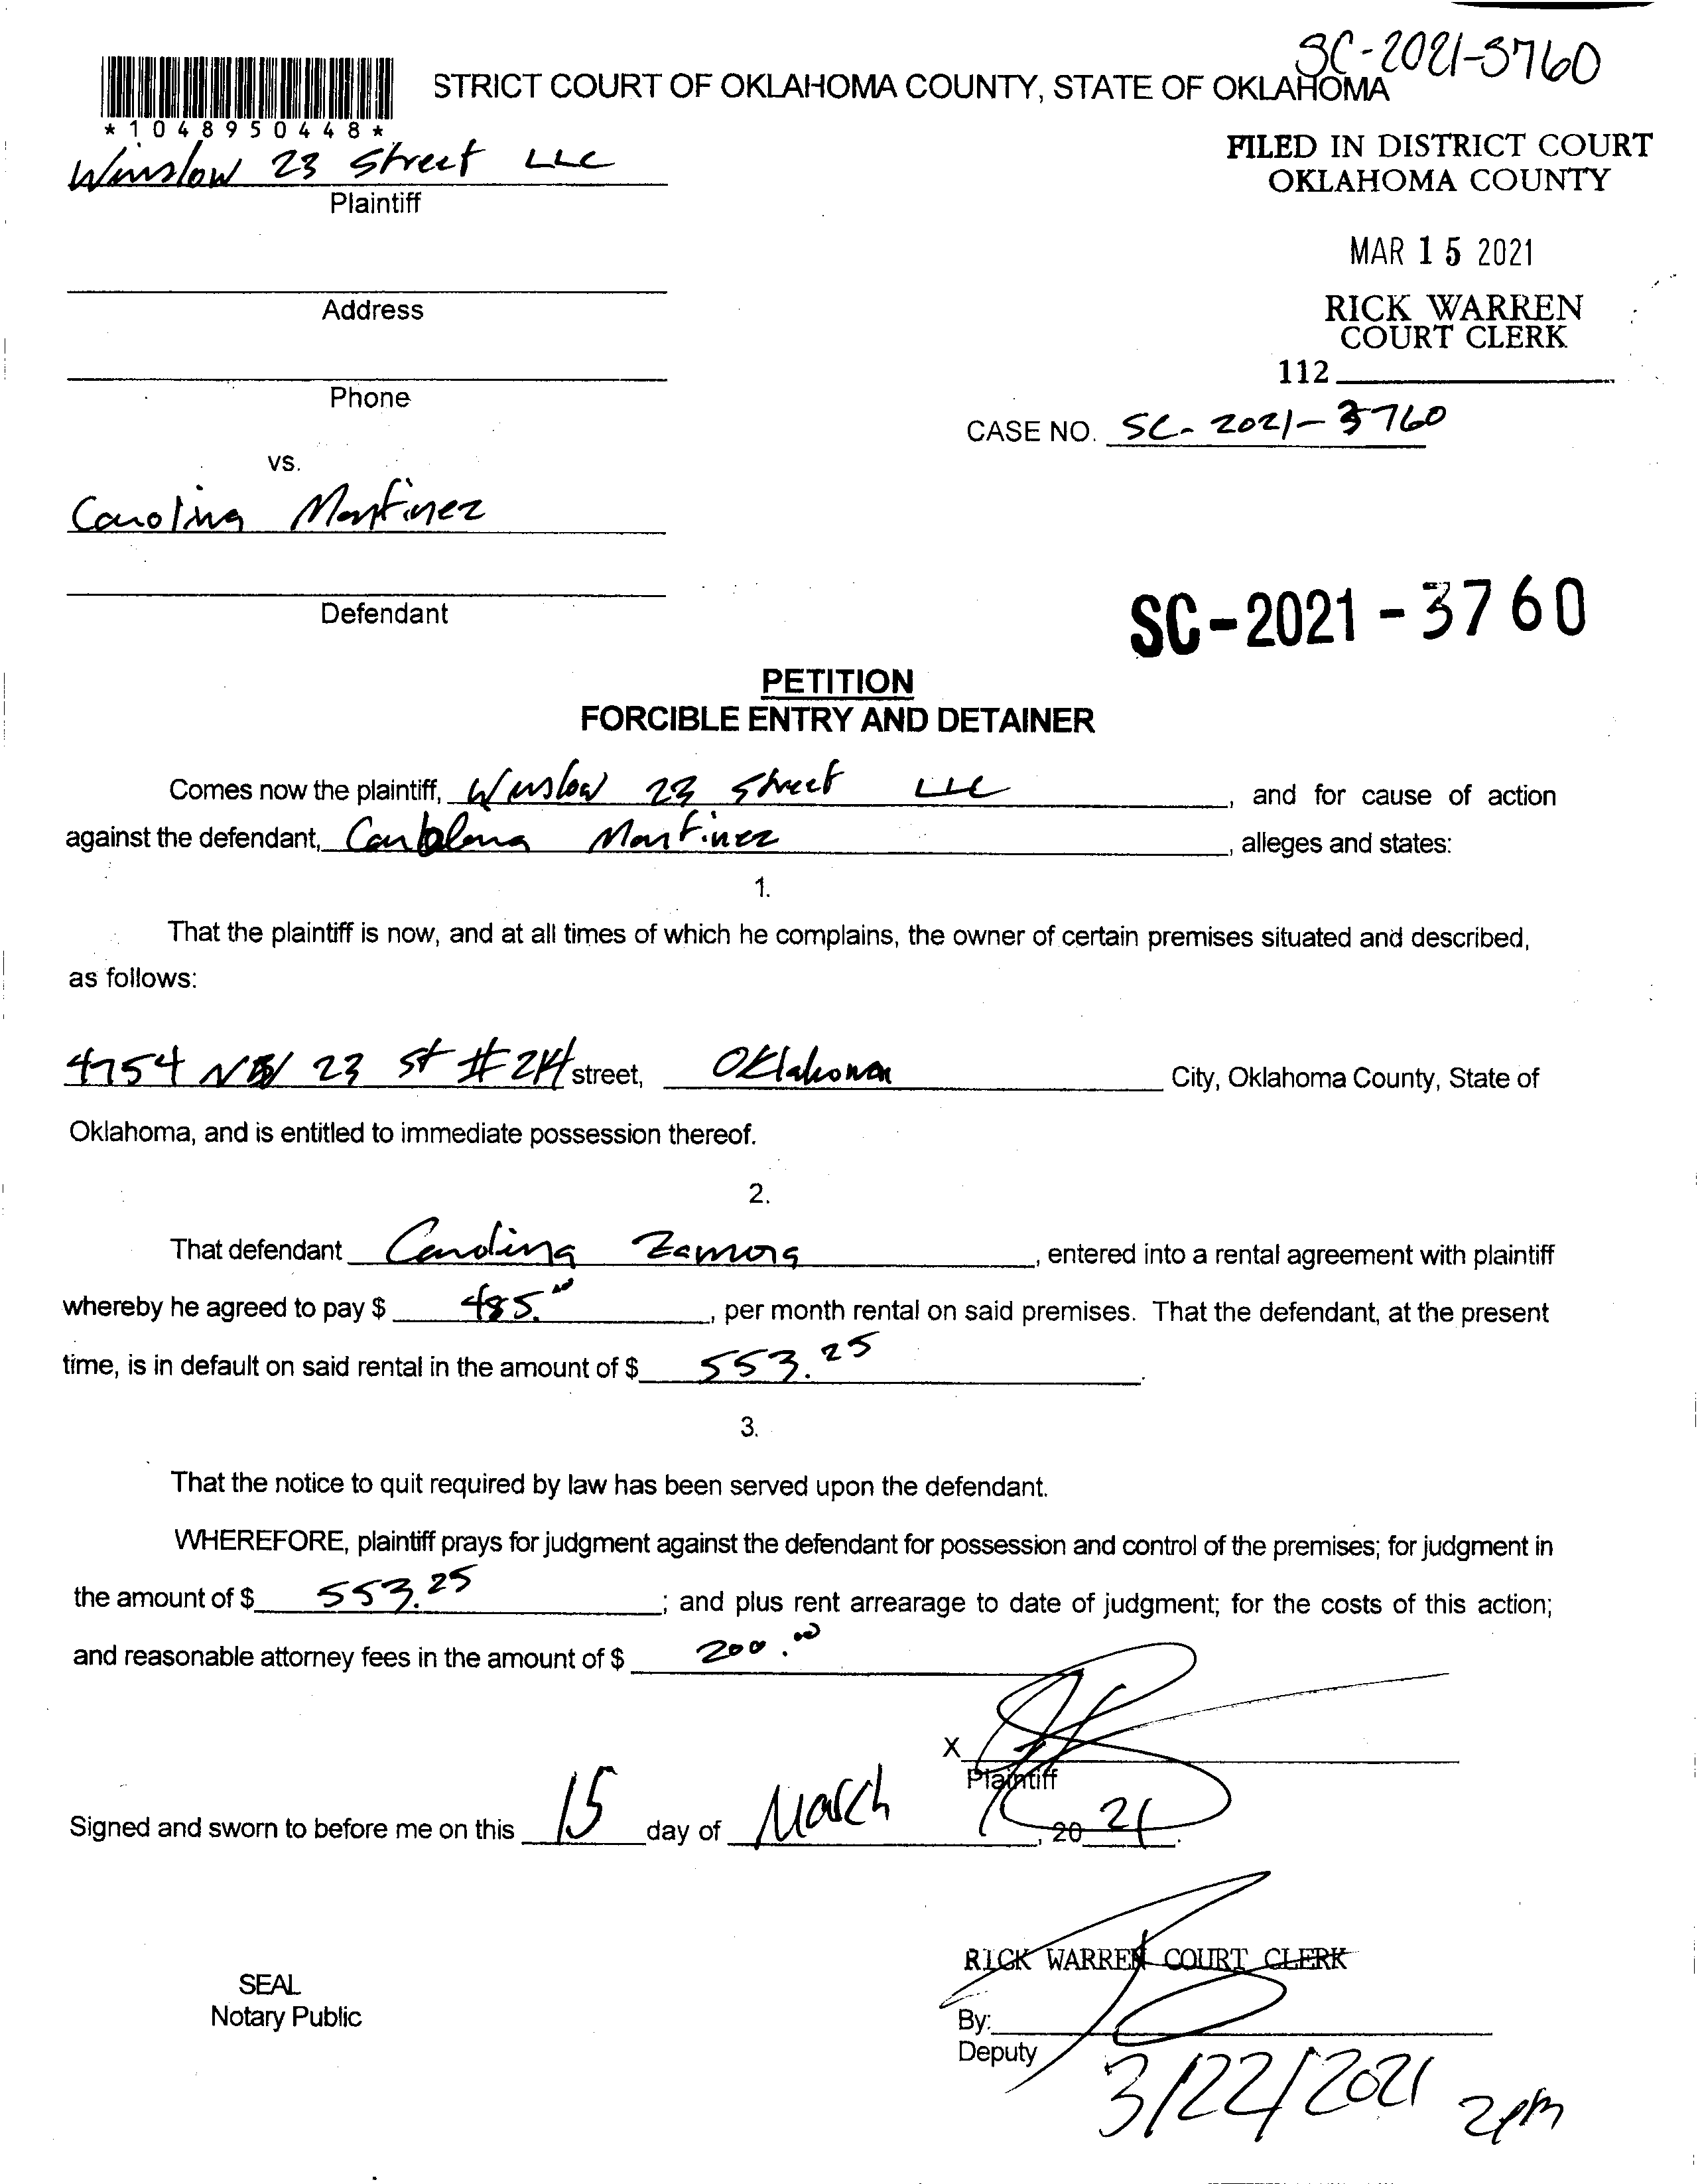 SC-2021-3760
STRICT COURT OF OKLAHOMA COUNTY, STATE OF OKLAHOMA
*1048950448*
Winslow 23 Street LLC
Plaintiff
FILED IN DISTRICT COURT
OKLAHOMA COUNTY
MAR 15 2021
RICK WARREN
COURT CLERK
112
Address
Phone
CASE NO. SC-2021-3760
vs.
Carolina Martinez
Defendant
SC-2021-3760
PETITION
FORCIBLE ENTRY AND DETAINER
Comes now the plaintiff, Winslow 23 Street LLC, and for cause of action
against the defendant, Martinez, alleges and states:
1.
That the plaintiff is now, and at all times of which he complains, the owner of certain premises situated and described,
as follows:
4754 NW 23 St # 214 street, Oklahoma City, Oklahoma County, State of
Oklahoma, and is entitled to immediate possession thereof.
2.
That defendant Carolina Zamora, entered into a rental agreement with plaintiff
whereby he agreed to pay $ 485.00, per month rental on said premises. That the defendant, at the present
time, is in default on said rental in the amount of $ 553.25.
3.
That the notice to quit required by law has been served upon the defendant.
WHEREFORE, plaintiff prays for judgment against the defendant for possession and control of the premises; for judgment in
the amount of $ 553.25; and plus rent arrearage to date of judgment; for the costs of this action;
and reasonable attorney fees in the amount of $ 200.00
X
Plaintiff
Signed and sworn to before me on this 15 day of March, 2021.
RICK WARREN COURT CLERK
SEAL
Notary Public
By:
Deputy
3/22/2021 2pm